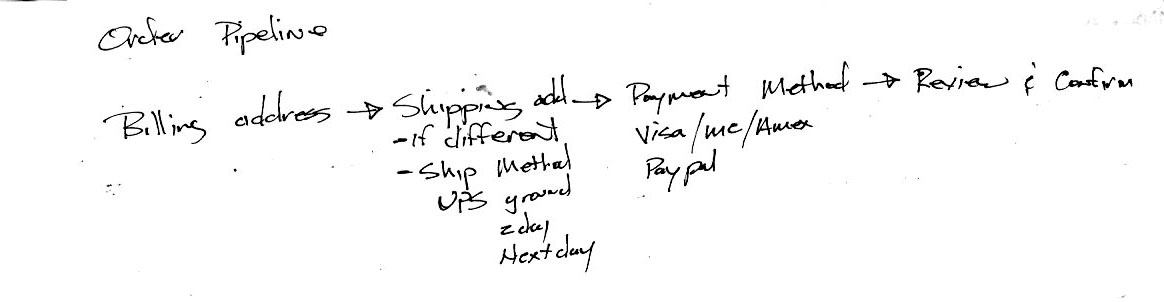 Order Pipeline
Billing address → Shipping add → Payment Method → Review & Confirm
- if different
- Ship Method
UPS ground
2 day
Next day
Visa/mc/Amex
Paypal